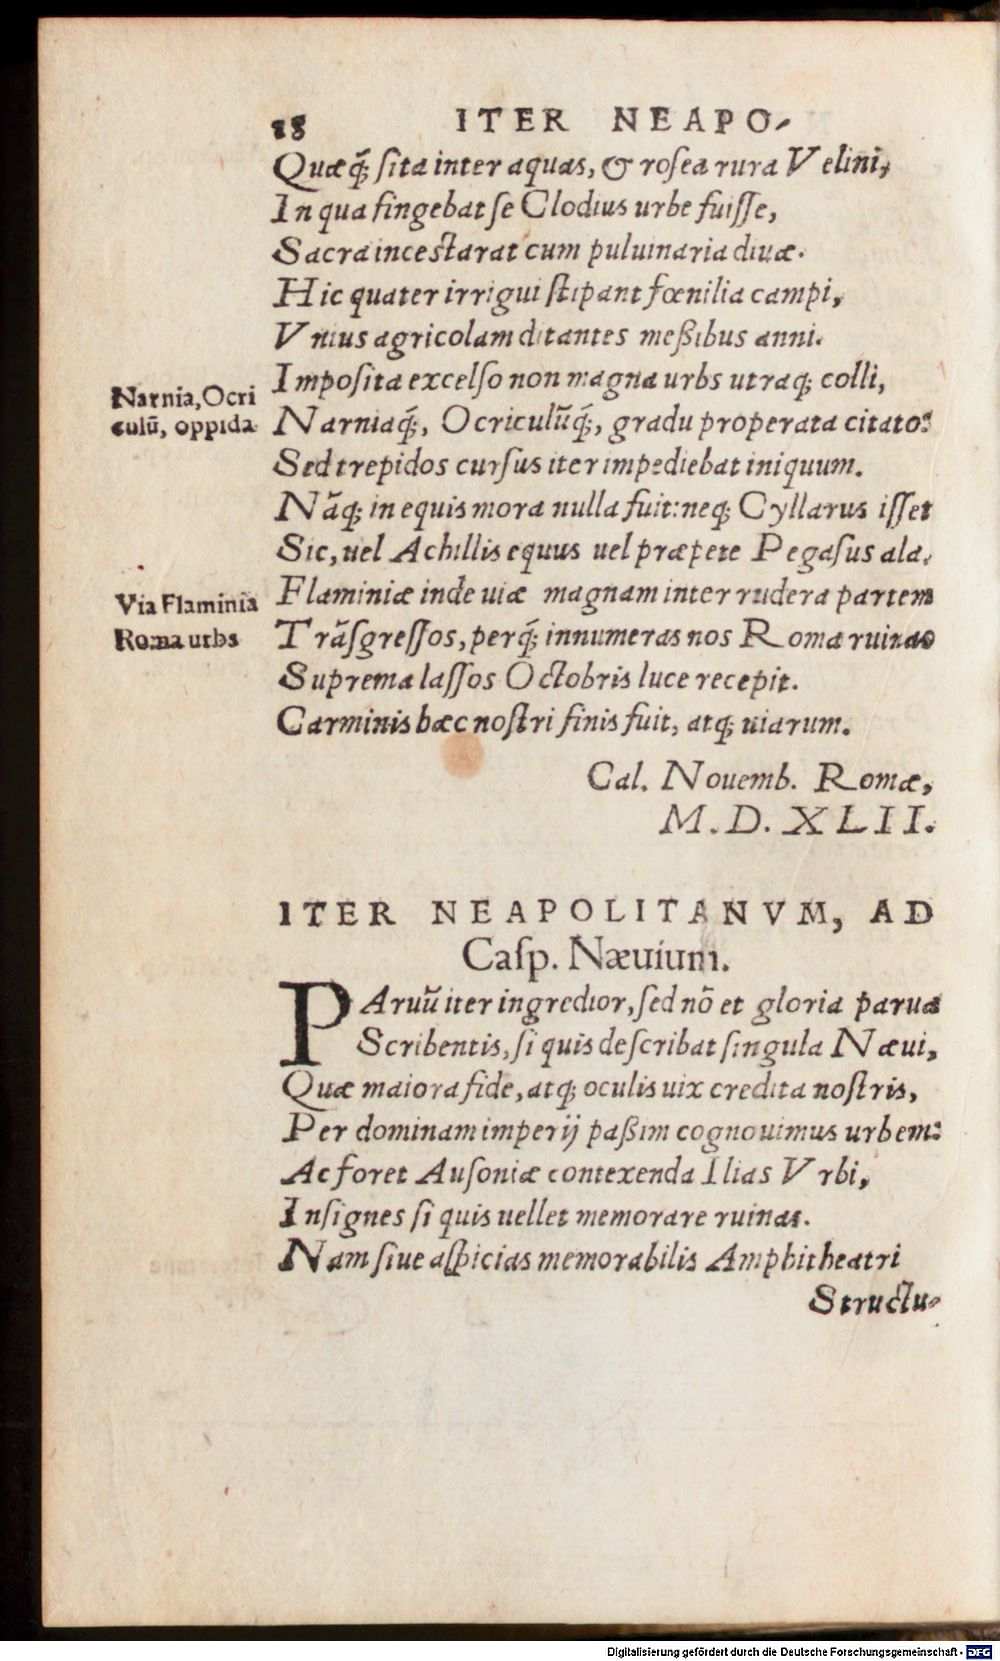 18 ITER NEAPO-
Quæq́; ſita inter aquas, & roſea rura Velini,
In qua fingebat ſe Clodius urbe fuiſſe,
Sacra inceſtarat cum puluinaria diuæ.
Hic quater irrigui ſtipant fœnilia campi,
Vnius agricolam ditantes meßibus anni.
Impoſita excelſo non magna urbs utraq; colli,
Narnia, Ocri
culū, oppida
Narniaq́;, Ocriculūq́;, gradu properata citato:
Sed trepidos curſus iter impediebat iniquum.
Nāq; in equis mora nulla fuit: neq; Cyllarus iſſet
Sic, uel Achillis equus uel præpete Pegaſus ala.
Via Flaminia
Flaminiæ inde uiæ magnam inter rudera partem
Roma urbs
Trāſgreſſos, perq́; innumeras nos Roma ruinas
Suprema laſſos Octobris luce recepit.
Carminis hæc noſtri finis fuit, atq; uiarum.
Cal. Nouemb. Romæ,
M. D. XLII.
ITER NEAPOLITANVM, AD
Caſp. Næuium.
PAruū iter ingredior, ſed nō et gloria parua
Scribentis, ſi quis deſcribat ſingula Næui,
Quæ maiora fide, atq; oculis uix credita noſtris,
Per dominam imperij paßim cognouimus urbem:
Ac foret Auſoniæ contexenda Ilias Vrbi,
Inſignes ſi quis uellet memorare ruinas.
Nam ſiue aſpicias memorabilis Amphitheatri
Structu-
Digitalisierung gefördert durch die Deutsche Forschungsgemeinschaft - DFG